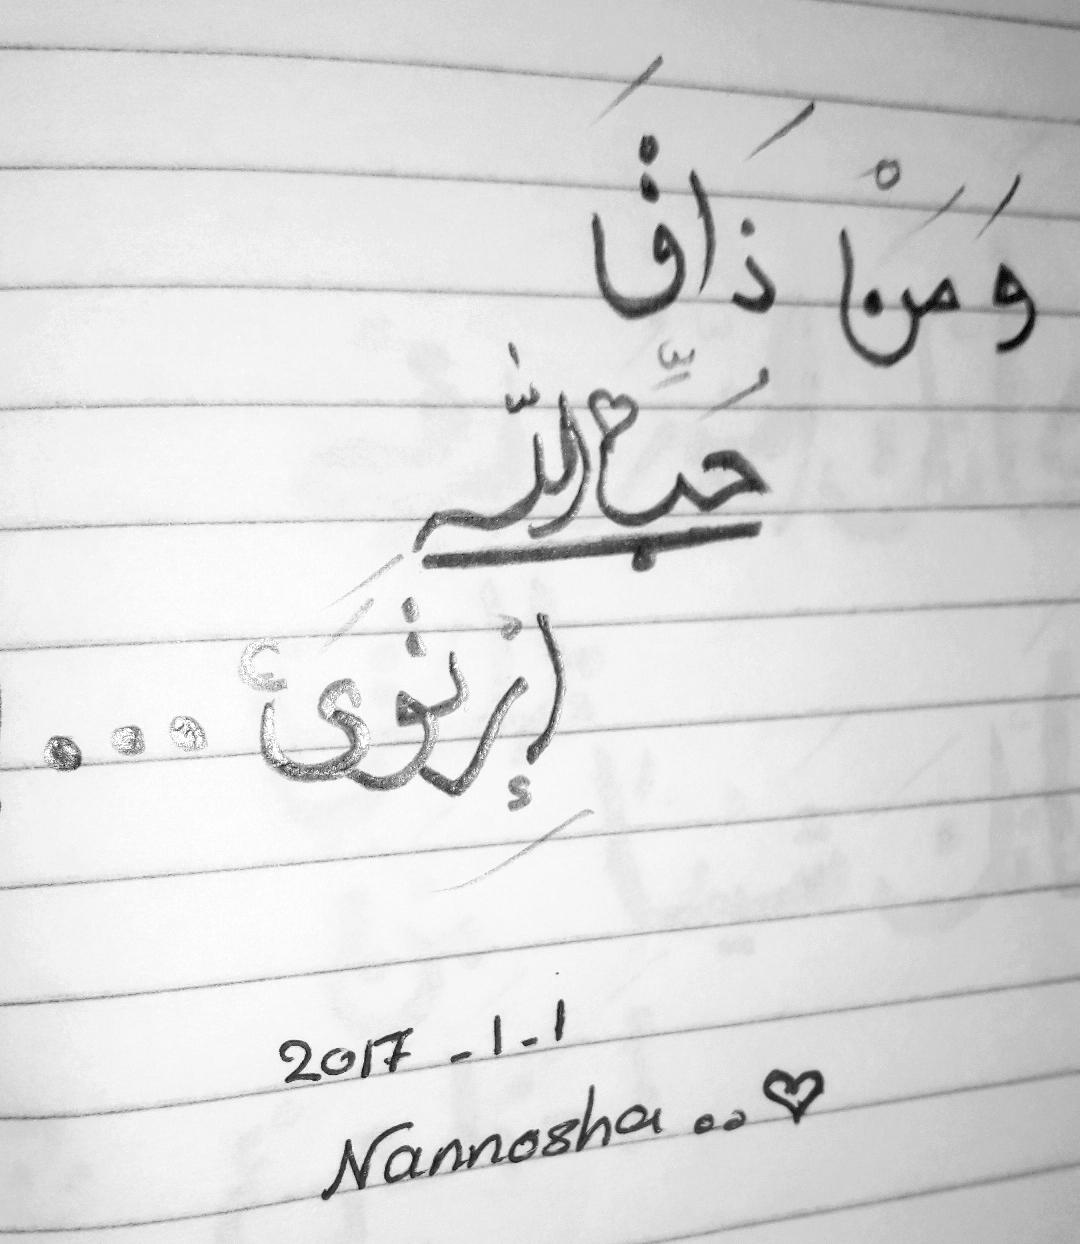 وَمَنْ ذَاقَ
حُبَّ اللّٰه
إرْتَوَىٰٔ...
2017 - 1 - 1
Nannosha ..♡